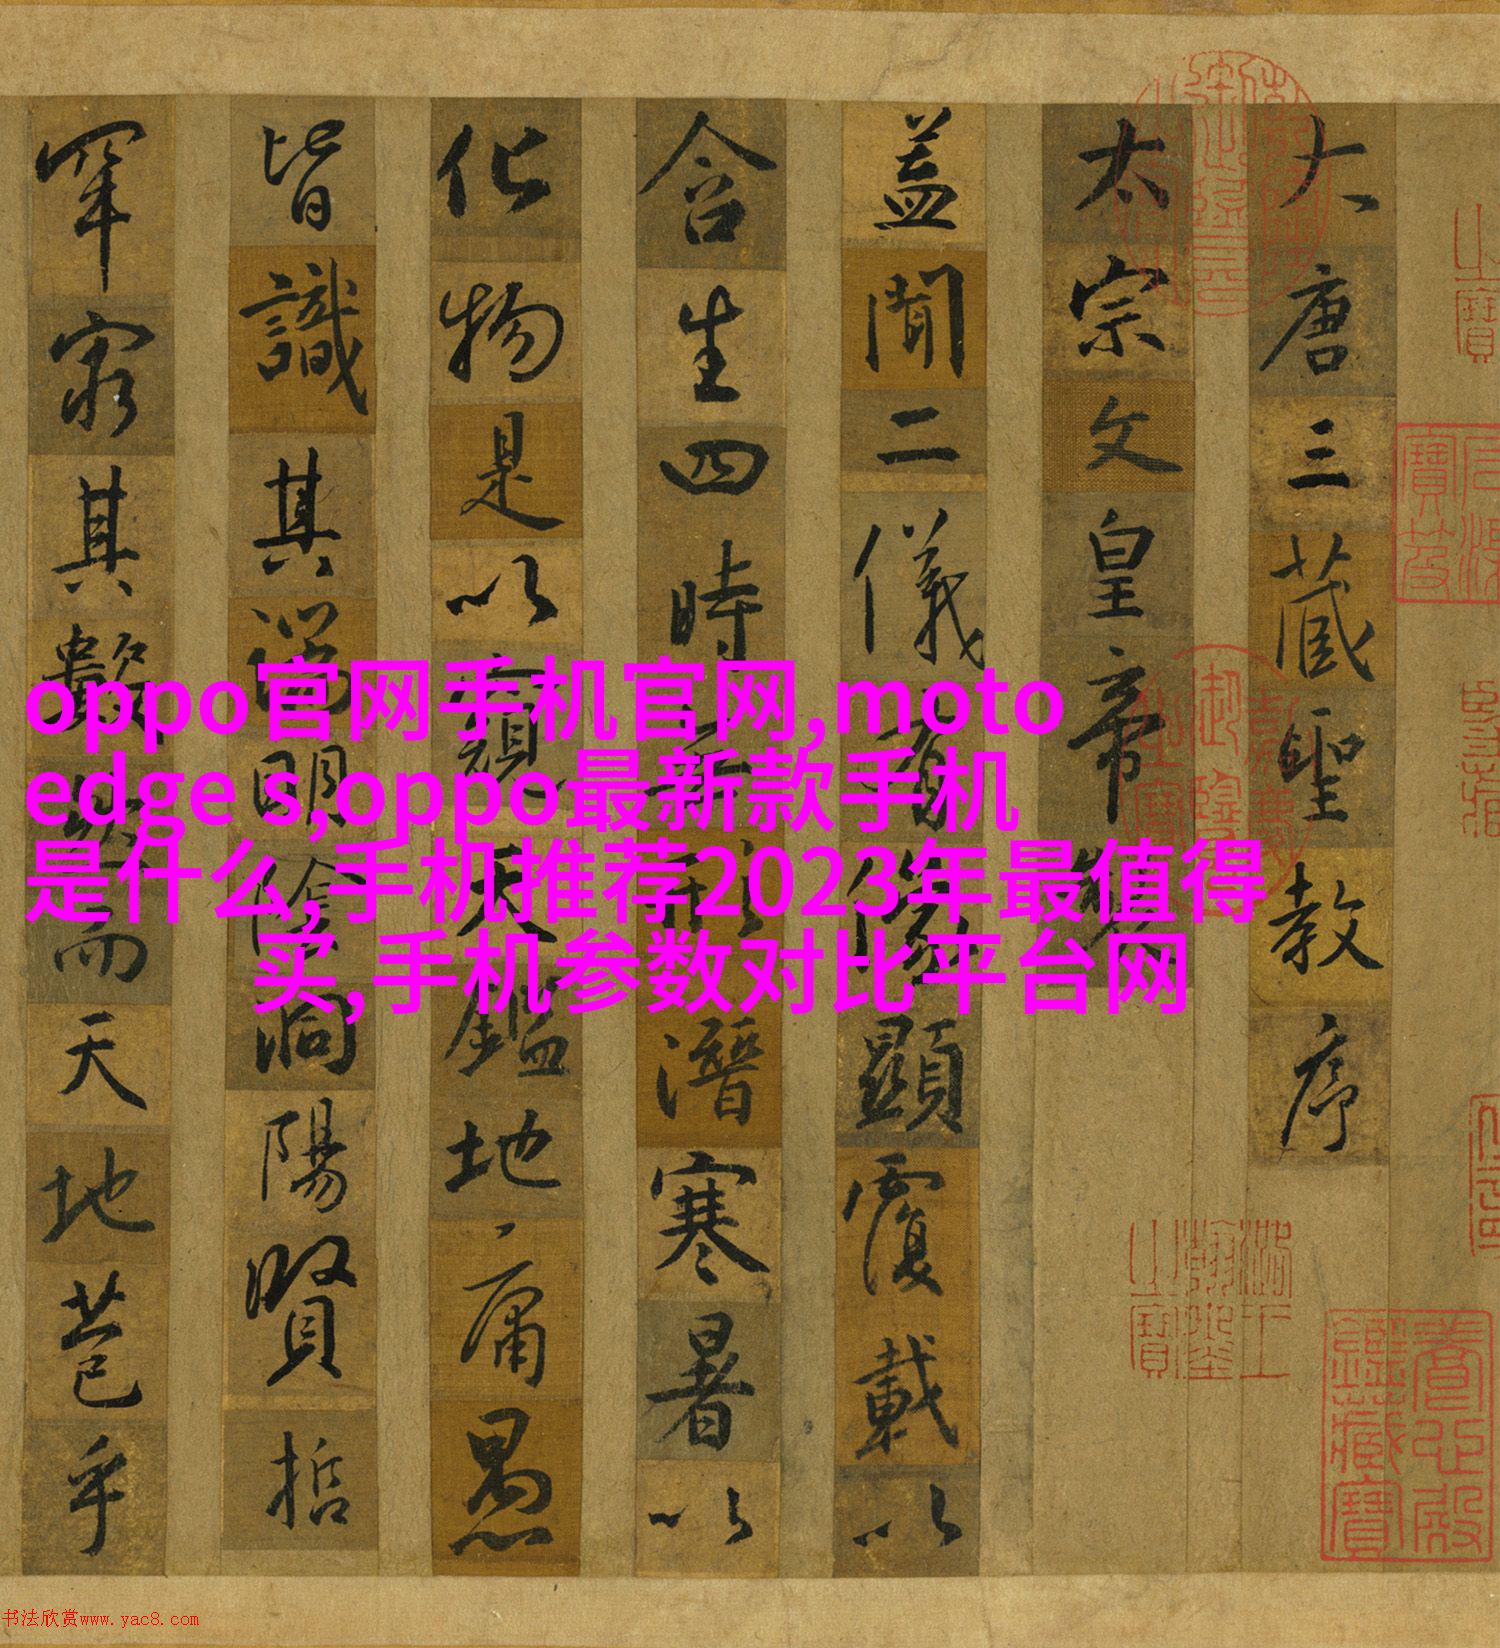 大唐三藏聖教序
太宗文皇帝製
蓋聞二儀有像顯覆載以
含生四時無形潛寒暑以
化物是以窺天鑑地庸愚
皆識其端明陰洞陽賢哲
罕窮其數然而天地苞乎
oppo官网手机官网,moto
edge s,oppo最新款手机
是什么,手机推荐2023年最值得
买,手机参数对比平台网
養心殿鑑藏寶
书法欣赏www.yac8.com